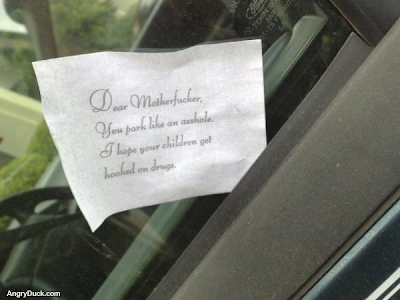 Dear Motherfucker,
You park like an asshole.
I hope your children get
hooked on drugs.
AngryDuck.com